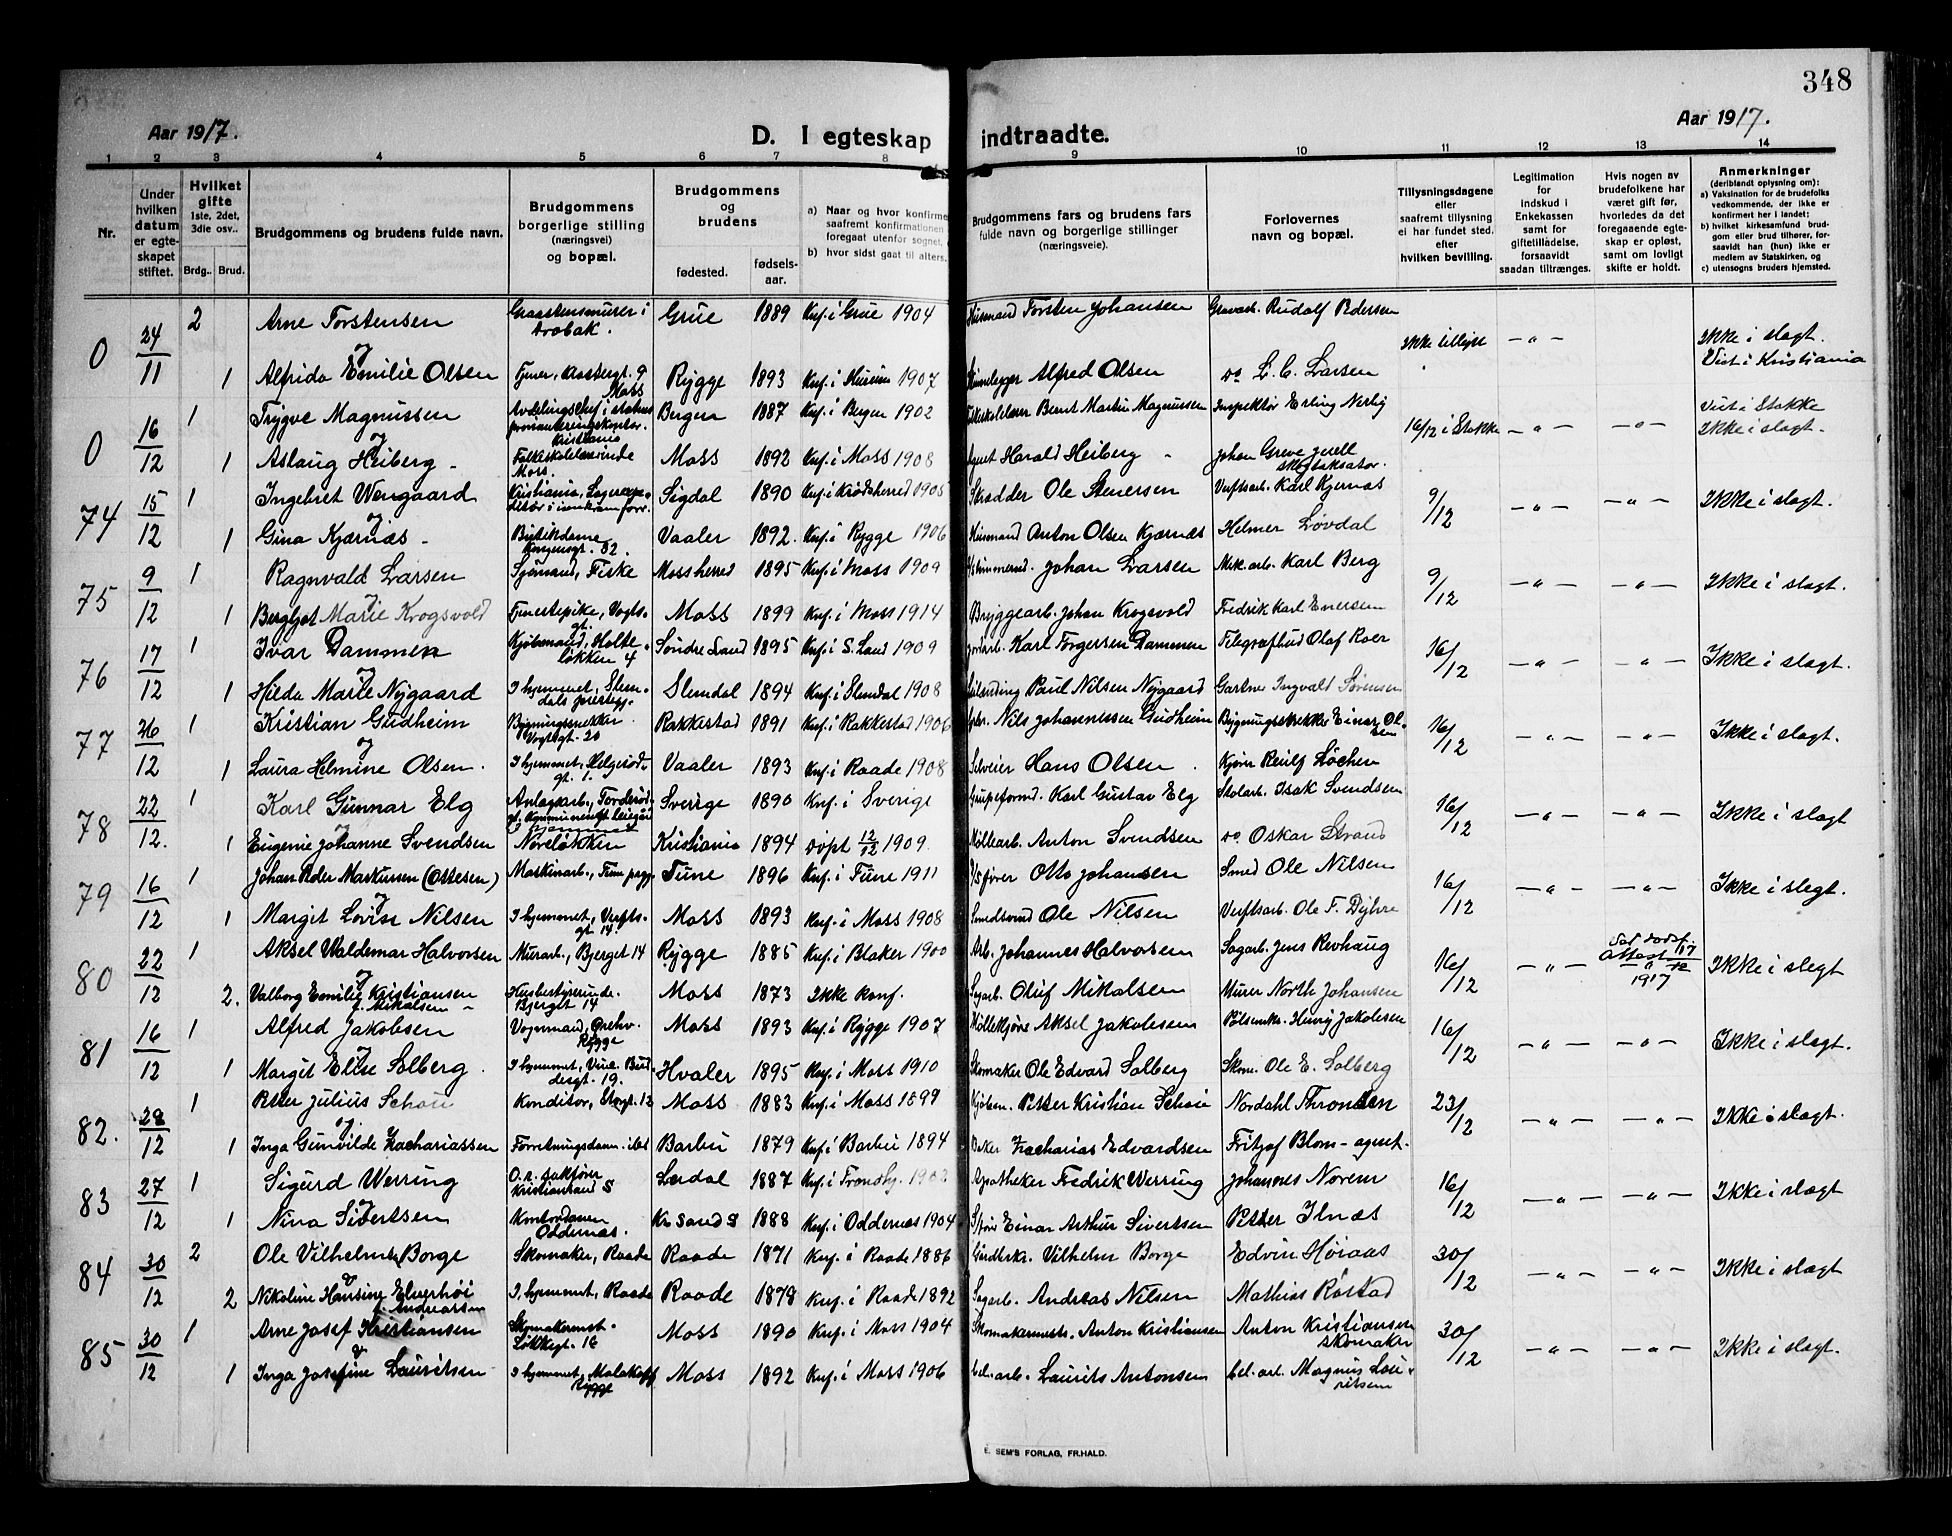 348
Aar 1917. D. I egteskap indtraadte. Aar 1917.
1 2 3 4 5 6 7 8 9 10 11 12 13 14
Nr.
Under hvilken datum er egteskapet stiftet.
Hvilket gifte 1ste, 2det, 3die osv..
Brdg.. Brud.
Brudgommens og brudens fulde navn.
Brudgommens borgerlige stilling (næringsvei) og bopæl.
Brudgommens og brudens
fødested. fødselsaar.
a) Naar og hvor konfirme
saafremt konfirmationen
foregaat utenfor sognet,
b) hvor sidst gaat til alters.
Brudgommens fars og brudens fars fulde navn og borgerlige stillinger (næringsveie).
Forlovernes navn og bopæl.
Tillysningsdagene eller saafremt tillysning ei har fundet sted. efter hvilken bevilling.
Legitimation for indskud i Enkekassen samt for giftetilladelse, forsaavidt saadan tiltrænges.
Hvis nogen av brudefolkene har været gift før, hvorledes da det foregaaende egteskap er opløst, samt om lovlig skifte er holdt.
Anmerkninger (deriblandt oplysning om): a) Vaksination for de brudefolks vedkommende, der ikke er konfirmert her i landet; b) hvilket kirkesamfund brudgom eller brud tilhører, forsaavidt han (hun) ikke er medlem av Statskirken, og c) utensogns bruders hjemsted.
0 24/11 2 Arne Torstensen Graastensmurer i Drøbak. Grue 1889 Knf. i Grue 1904 Husmand Torsten Johansen Gravarb. Rudolf Pedersen Ikke tillyst — " — Ikke i slagt.
og Viet i Kristiania
1 Alfrida Emilie Olsen Tjener, Kastergt. 9 Moss Rygge 1893 Knf. i 1907 Alfred Olsen do L. C. Larsen
0 16/12 1 Trygve Magnussen Avdelingschef i statens Kristiania Bergen 1887 Knf. i Bergen 1902 Bernt Martin Magnussen Inspektør Erling Nerby 16/12 i Stokke — " — — " — Viet i Stokke Ikke i slagt.
og
1 Aslaug Heiberg - Folkeskolelærerinde Moss. Moss 1892 Knf. i Moss 1908 Agent Harald Heiberg Johan Greve skogtaksator.
74 15/12 1 Ingebret Wengaard Kristiania, Sigdal 1890 Knf. i Krødsherred 1905 Skrædder Ole Stenersen Verftsarb. Karl Kjernæs 9/12 — " — — " — Ikke i slagt.
og
1 Gina Kjærnæs - Butikdame Kongensgt. 32. Vaaler 1892. Knf. i Rygge 1906 Husmand Anton Olsen Kjærnæs Helmer Løvdal
75 9/12 1 Ragnvald Larsen Sjømand, Fiske Mossherred 1895 Knf. i Moss 1909 Johan Larsen Mek. arb. Karl Berg 9/12 — " — — " — Ikke i slagt.
og
1 Bergljot Marie Krogsvold Tjenestepike, Vogtsgt. Moss 1899 Knf. i Moss 1914 Bryggearb. Johan Krogsvold Fredrik Karl Enersen
76 17/12 1 Ivar Dammen Kjøbmand, Holteløkken 4 Søndre Land 1895 Knf. i S. Land 1909 Jordarb. Karl Torgersen Dammen Telegrafbud Olaf Roer 16/12 — " — — " — Ikke i slagt.
og
1 Hilda Marie Nygaard I hjemmet, Slemdals prestegj. Slemdal 1894 Knf. i Slemdal 1908 Paul Nilsen Nygaard Gartner Ingvald Sørensen
77 26/12 1 Kristian Gudheim Bygningssnekker Vogtsgt. 20 Rakkestad 1891 Knf. i Rakkestad 1906 Nils Johannessen Gudheim Bygningssnekker Einar Olsen 16/12 — " — — " — Ikke i slagt.
og
1 Laura Helmine Olsen. I hjemmet, Helgerødgt. 1. Vaaler 1893 Knf. i Raade 1908 Selveier Hans Olsen Kjører Reidf Løchen
78 22/12. 1 Karl Gunnar Elg Anlagsarb., Tordenrødgt. Kommunens Sverige 1890 Knf. i Sverige Grubeformd. Karl Gustav Elg Stolarb. Isak Svendsen 16/12 — " — — " — Ikke i slagt
og
1 Eugenie Johanne Svendsen I hjemmet Noreløkken Kristiania 1894 døpt 12/12 1909. Møllearb. Anton Svendsen do Oskar Strand
79 16/12 1 Johan Peder Markussen (Ottesen) Maskinarb., Tune prgj. Tune 1896 Knf. i Tune 1911 Otto Johansen Smed Ole Nilsen 16/12 — " — — " — Ikke i slegt.
og
1 Margit Lovise Nilsen I hjemmet, Verftsgt. 14. Moss 1893 Knf. i Moss 1908 Ole Nilsen Verftsarb. Ole T. Dyhre
80 22/12 1 Aksel Waldemar Halvorsen Murarb., Bjerget 14 Rygge 1885 Knf. i Blaker 1900 Arb. Johannes Halvorsen Sagarb. Jens Revhaug 16/12 — " — Attest 17/12 1917 Ikke i slegt
og
2. Valborg Emilie Kristiansen f. Mikalsen - Husbestyrerinde. Bjerget 14 Moss 1873 Ikke konf. Sagarb. Oluf Mikalsen Murer North Johansen
81 16/12 1 Alfred Jakobsen Vognmand, Ørehv. Rygge Moss 1893 Knf. i Rygge 1907 Møllekjører Aksel Jakobsen Pølsemk. Henrij Jakobsen 16/12 — " — — " — Ikke i slagt.
og
1 Margit Elise Solberg. I hjemmet, Vinc. Buddesgt. 19. Hvaler 1895 Knf. i Moss 1910 Skomaker Ole Edvard Solberg Skom. Ole E. Solberg
82. 28/12 1 Petter Julius Schou Konditor, Storgt. 12 Moss 1883 Knf. i Moss 1899 Kjøbm. Petter Kristian Schou Nordahl Throndsen 23/12 — " — — " — Ikke i slagt.
og.
1 Inga Gunvilde Zachariassen Forretningsdame. ibd Barbu 1879 Knf. i Barbu 1894 Zacharias Edvardsen Fritjof Blom - agent.
83 27/12 1 Sigurd Werring O.r. sakfører Kristiansand S Lærdal 1887 Knf. i Trondhj. 1902 Apotheker Fredrik Werring Johannes Norem 16/12 — " — — " — Ikke i slagt
og
1 Nina Sivertsen Kontordame Oddernæs. Kr.sand S 1888 Knf. i Oddernæs 1904 Einar Arthur Sivertsen Petter Ilnæs
84 30/12 2 Ole Vilhelmsen Borge Skomaker, Raade Raade 1871 Knf. i Raade 1886 Gaardbr. Vilhelm Borge Edvin Høiaas 30/12 — " — — " — Ikke i slagt
og
2 Nikoline Hansine Elverhøi f. Andreassen I. hjemmet, Raade Raade 1878 Knf. i Raade 1892 Sagarb. Andreas Nilsen Mathias Røstad
85 30/12 1 Arne Josef Kristiansen Skomakermst. Løkkegt. 16 Moss 1890 Knf. i Moss 1904 Skomakermestr. Anton Kristiansen Anton Kristiansen skomaker 30/12 — " — — " — Ikke i slagt.
og
1 Inga Josefine Lauritsen I hjemmet, Malakoff Rygge Moss 1892 Knf. i Moss 1906 Cel. arb. Laurits Antonsen Cel. arb. Magnus Lauritsen
E. SEM'S FORLAG, FR.HALD.